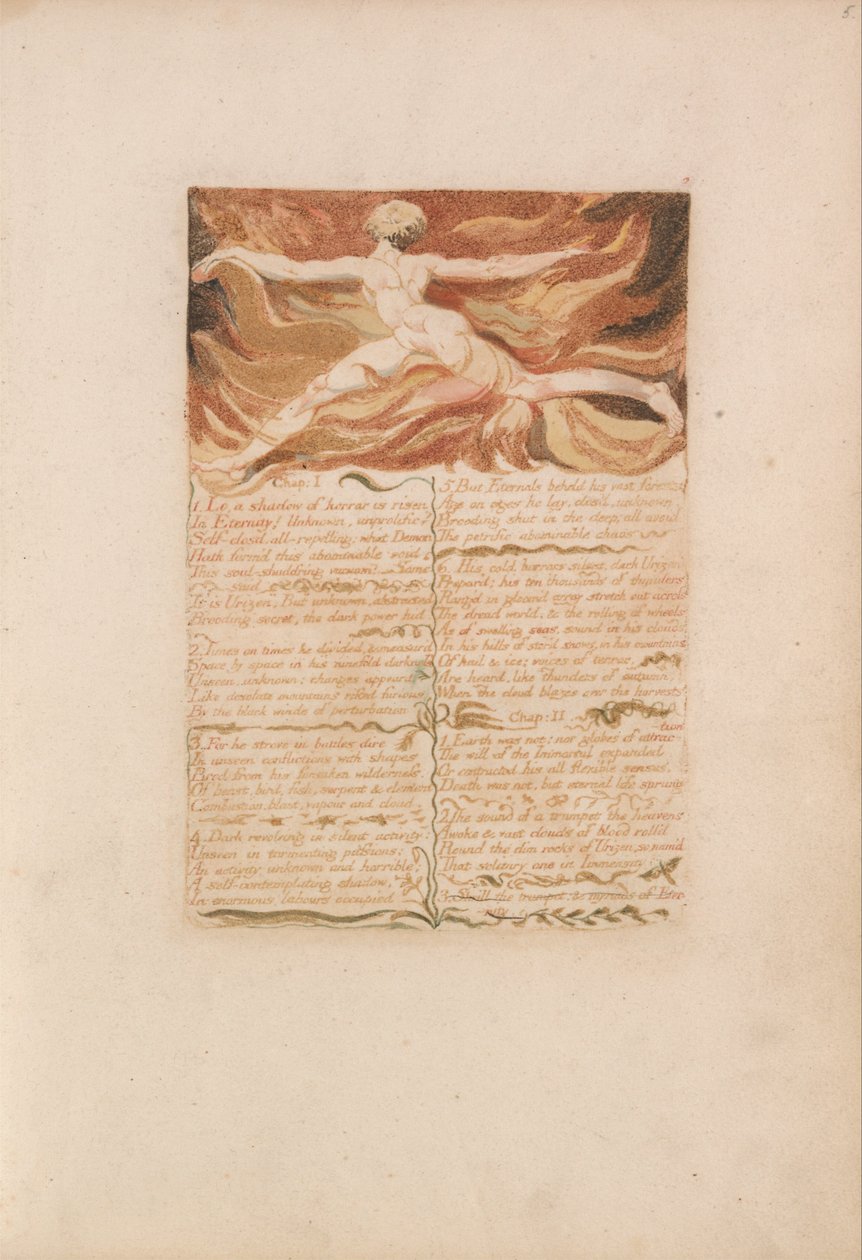 5.
Chap: I
1. Lo, a shadow of horror is risen
In Eternity! Unknown, unprolific!
Self-closd, all-repelling: what Demon
Hath form'd this abominable void
This soul-shudd'ring vacuum?—Some
said
It is Urizen, But unknown, abstracted
Brooding secret, the dark power hid
2. Times on times he divided, & measur'd
Space by space in his ninefold darkness
Unseen, unknown: changes appeard
Like desolate mountains rifted furious
By the black winds of perturbation
3. For he strove in battles dire
In unseen conflictions with shapes
Bred from his forsaken wilderness,
Of beast, bird, fish, serpent & element
Combustion, blast, vapour and cloud.
4. Dark revolving in silent activity:
Unseen in tormenting passions;
An activity unknown and horrible;
A self-contemplating shadow,
In enormous labours occupied
5. But Eternals beheld his vast forests
Age on ages he lay, clos'd, unknown,
Brooding shut in the deep; all avoid
The petrific abominable chaos
6. His cold horrors silent, dark Urizen
Prepar'd; his ten thousands of thunders
Rang'd in gloom'd array stretch out across
The dread world, & the rolling of wheels
As of swelling seas, sound in his clouds
In his hills of stor'd snows, in his mountains
Of hail & ice; voices of terror,
Are heard, like thunders of autumn,
When the cloud blazes over the harvests
Chap: II.
1. Earth was not: nor globes of attrac-
tion
The will of the Immortal expanded
Or contracted his all flexible senses.
Death was not, but eternal life sprung
2. The sound of a trumpet the heavens
Awoke & vast clouds of blood roll'd
Round the dim rocks of Urizen, so nam'd
That solitary one in Immensity
3. Shrill the trumpet: & myriads of Eter-
nity,